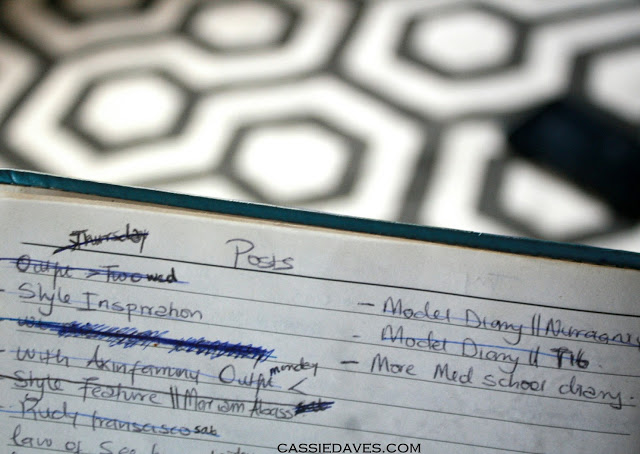 Thursday
Posts
Outfit > Two wed
- Style Inspiration
- With Akinfaminy Outfit monday
- Style Feature || Mariam Abass
Rudy fransisco sat
law of
- Model Diary || Nurragary
- Model Diary || T16.
- More Med school diary.
CASSIEDAVES.COM